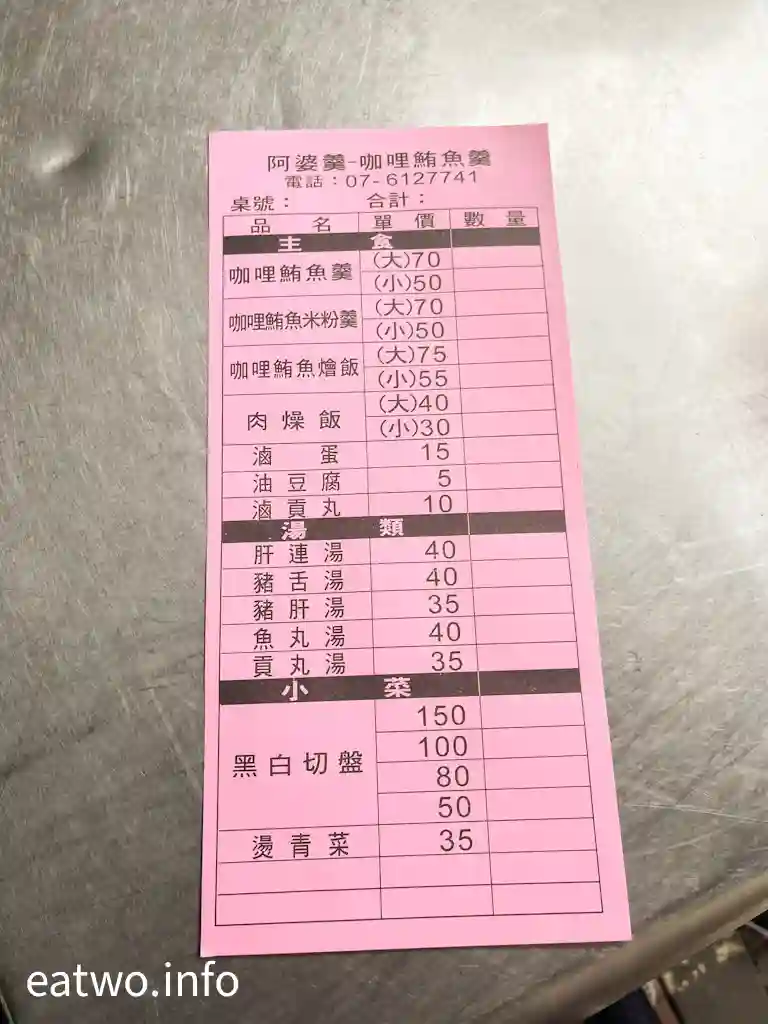 阿婆羹-咖哩鮪魚羹
電話：07-6127741
桌號： 合計：
品 名 單 價 數 量
主 食
咖哩鮪魚羹 (大)70
(小)50
咖哩鮪魚米粉羹 (大)70
(小)50
咖哩鮪魚燴飯 (大)75
(小)55
肉燥飯 (大)40
(小)30
滷 蛋 15
油豆腐 5
滷貢丸 10
湯 類
肝連湯 40
豬舌湯 40
豬肝湯 35
魚丸湯 40
貢丸湯 35
小 菜
黑白切盤 150
100
80
50
燙青菜 35
eatwo.info